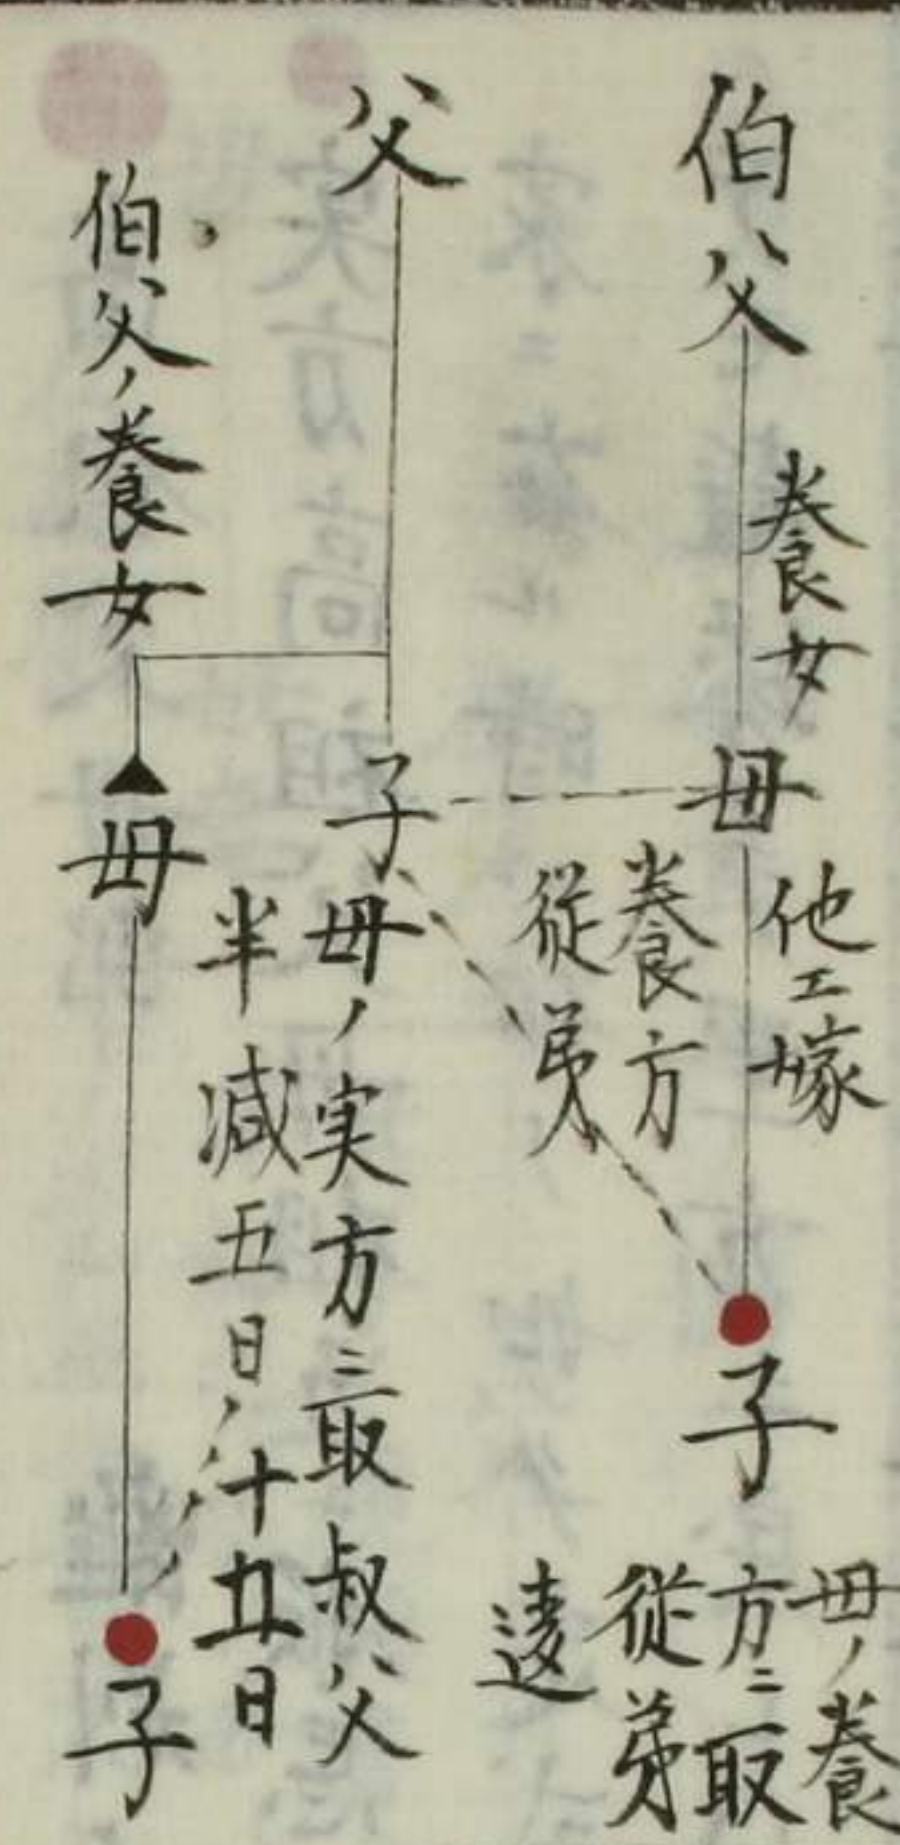 伯父
養女
母
他エ嫁
養方
従弟
子
母ノ養
方ニ取
従弟
違
父
子
母ノ実方ニ取叔父
半減五日
十五日
伯父ノ養女
母
子